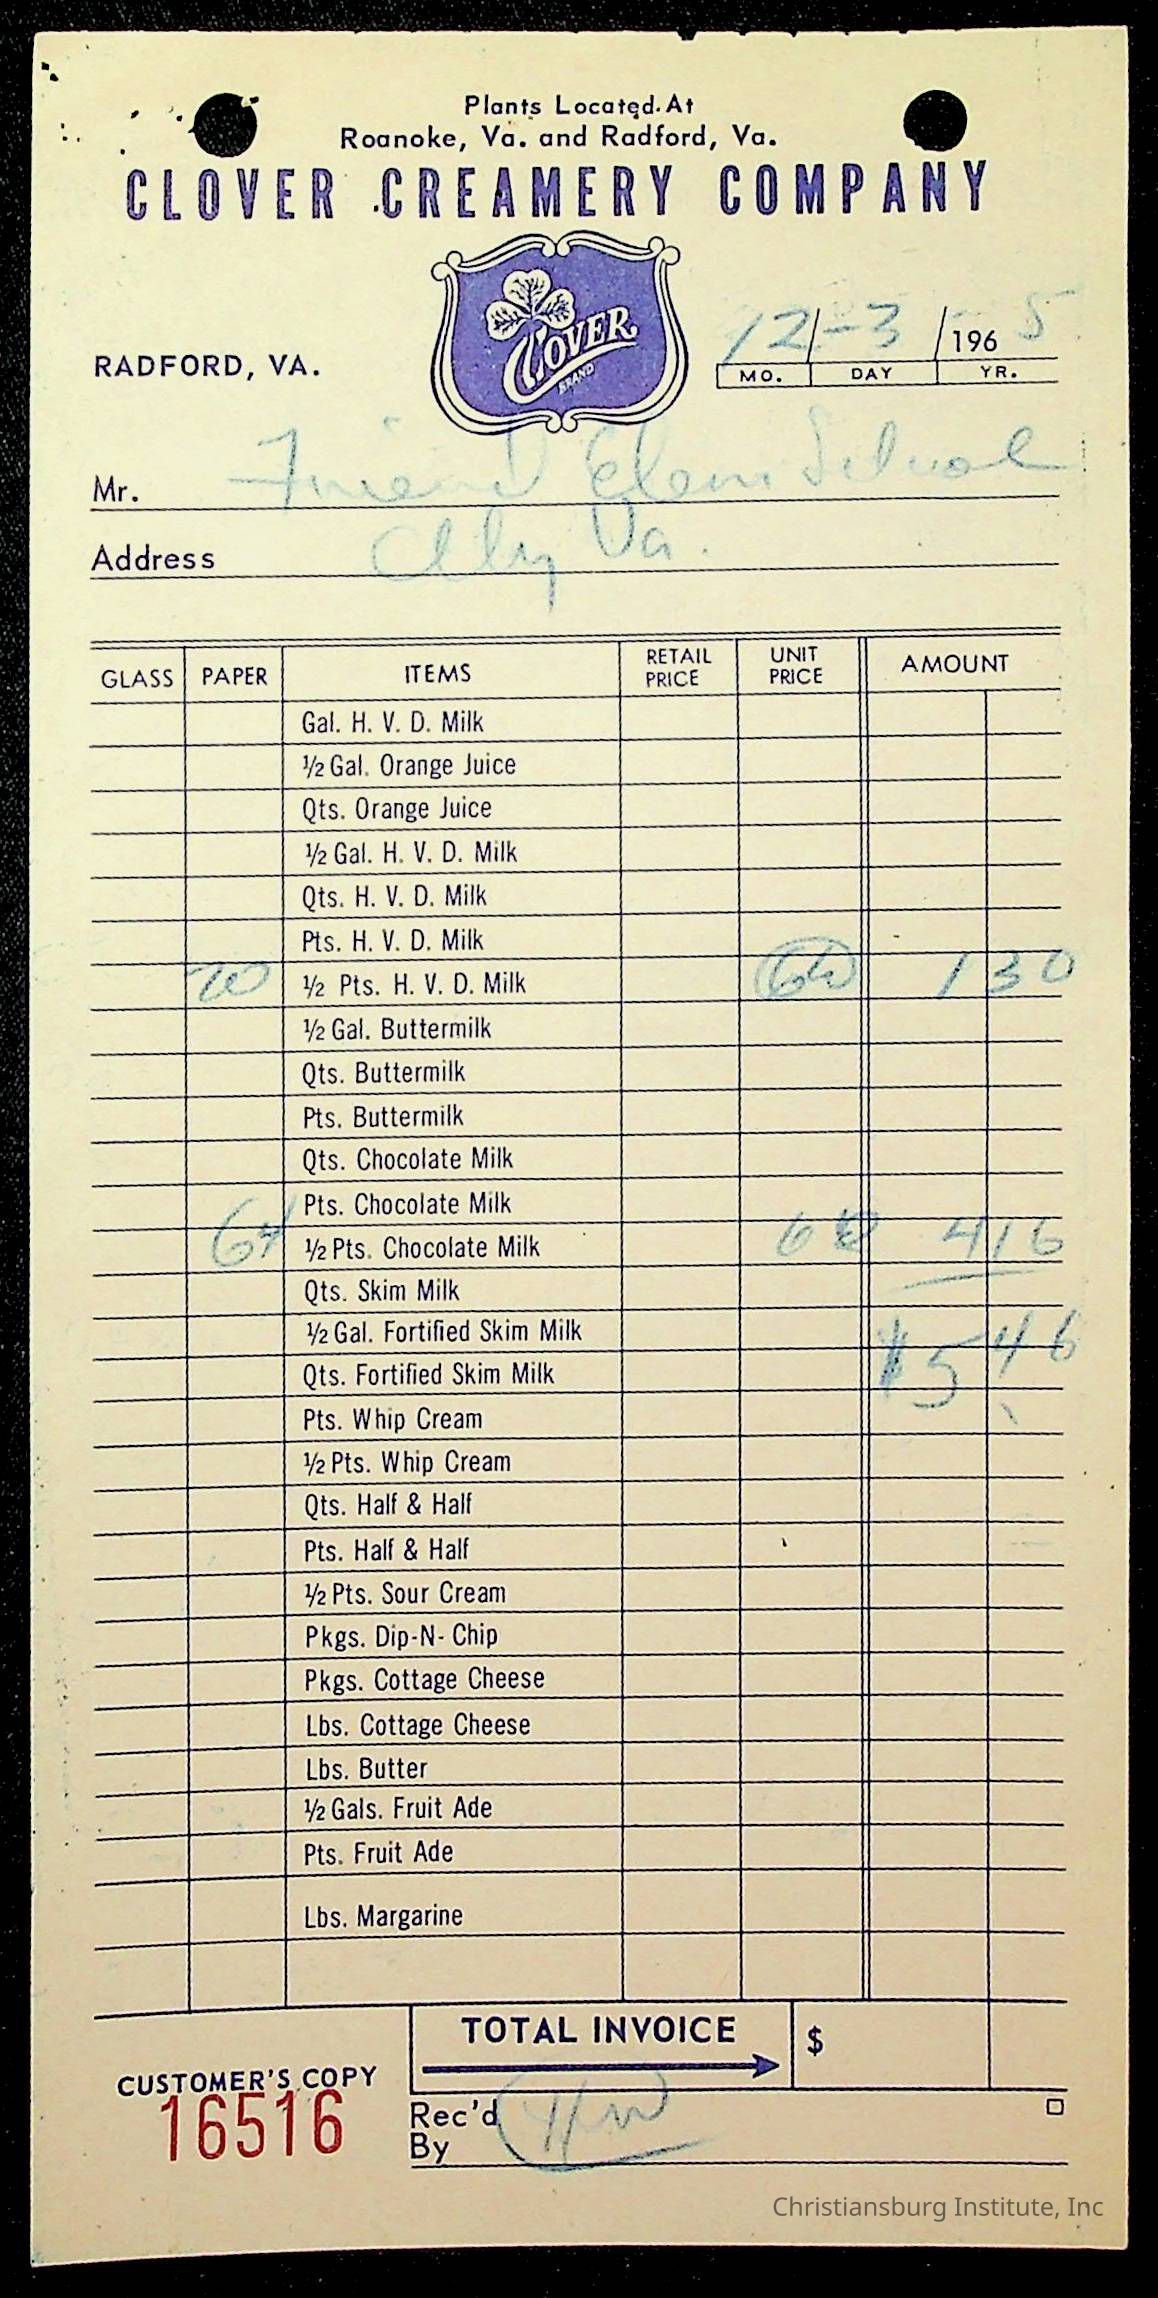 Plants Located At
Roanoke, Va. and Radford, Va.
CLOVER CREAMERY COMPANY
CLOVER
BRAND
RADFORD, VA.
12/-3/1965
MO. DAY YR.
Mr. Friend Elem School
Address Va.
GLASS PAPER ITEMS RETAIL PRICE UNIT PRICE AMOUNT
Gal. H. V. D. Milk
½ Gal. Orange Juice
Qts. Orange Juice
½ Gal. H. V. D. Milk
Qts. H. V. D. Milk
Pts. H. V. D. Milk
20 ½ Pts. H. V. D. Milk 1 30
½ Gal. Buttermilk
Qts. Buttermilk
Pts. Buttermilk
Qts. Chocolate Milk
Pts. Chocolate Milk
64 ½ Pts. Chocolate Milk 4 16
Qts. Skim Milk
½ Gal. Fortified Skim Milk
$5 46
Qts. Fortified Skim Milk
Pts. Whip Cream
½ Pts. Whip Cream
Qts. Half & Half
Pts. Half & Half
½ Pts. Sour Cream
Pkgs. Dip-N-Chip
Pkgs. Cottage Cheese
Lbs. Cottage Cheese
Lbs. Butter
½ Gals. Fruit Ade
Pts. Fruit Ade
Lbs. Margarine
TOTAL INVOICE $
CUSTOMER'S COPY
16516
Rec'd
By
Christiansburg Institute, Inc